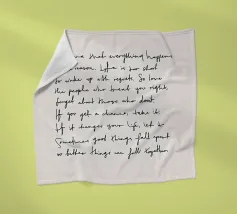 that everything happens
reason. Life is too short
to wake up with regrets. So love
the people who treat you right,
forget about those who dont.
If you get a chance, take it.
If it changes your life, let it
Sometimes good things fall apart
so better things can fall together